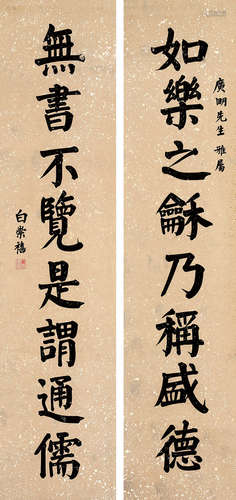 庚明先生 雅屬
如樂之龢乃稱盛德
無書不覽是謂通儒
白崇禧